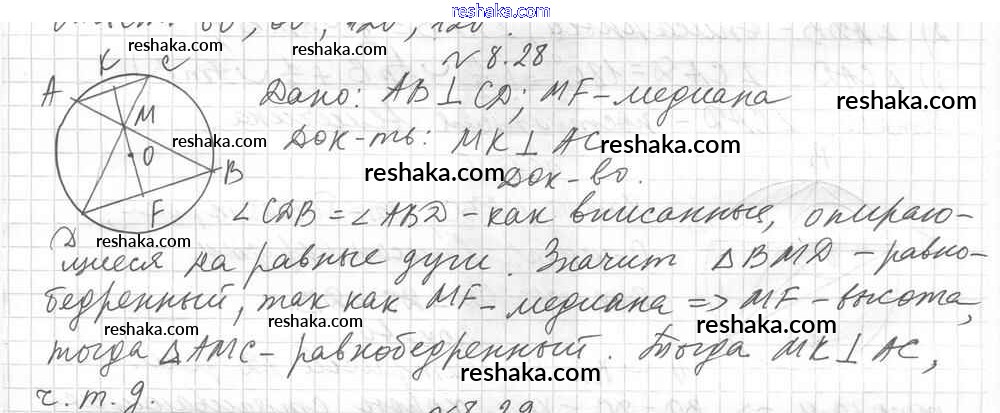 reshaka.com
60, 60, 120, 120.
reshaka.com
№ 8.28
K C
A
M
O
B
F
D
Дано: AB⊥CD; MF-медиана
reshaka.com reshaka.com
reshaka.com
Док-ть: MK⊥AC
reshaka.com
reshaka.com
Док-во.
∠CDB = ∠ABD - как вписанные, опираю-
reshaka.com
щиеся на равные дуги. Значит △BMD - равно-
reshaka.com
бедренный, так как MF-медиана => MF-высота,
reshaka.com reshaka.com
reshaka.com
тогда △AMC-равнобедренный. Тогда MK⊥AC,
reshaka.com
ч.т.д.
№8.29
reshaka.com